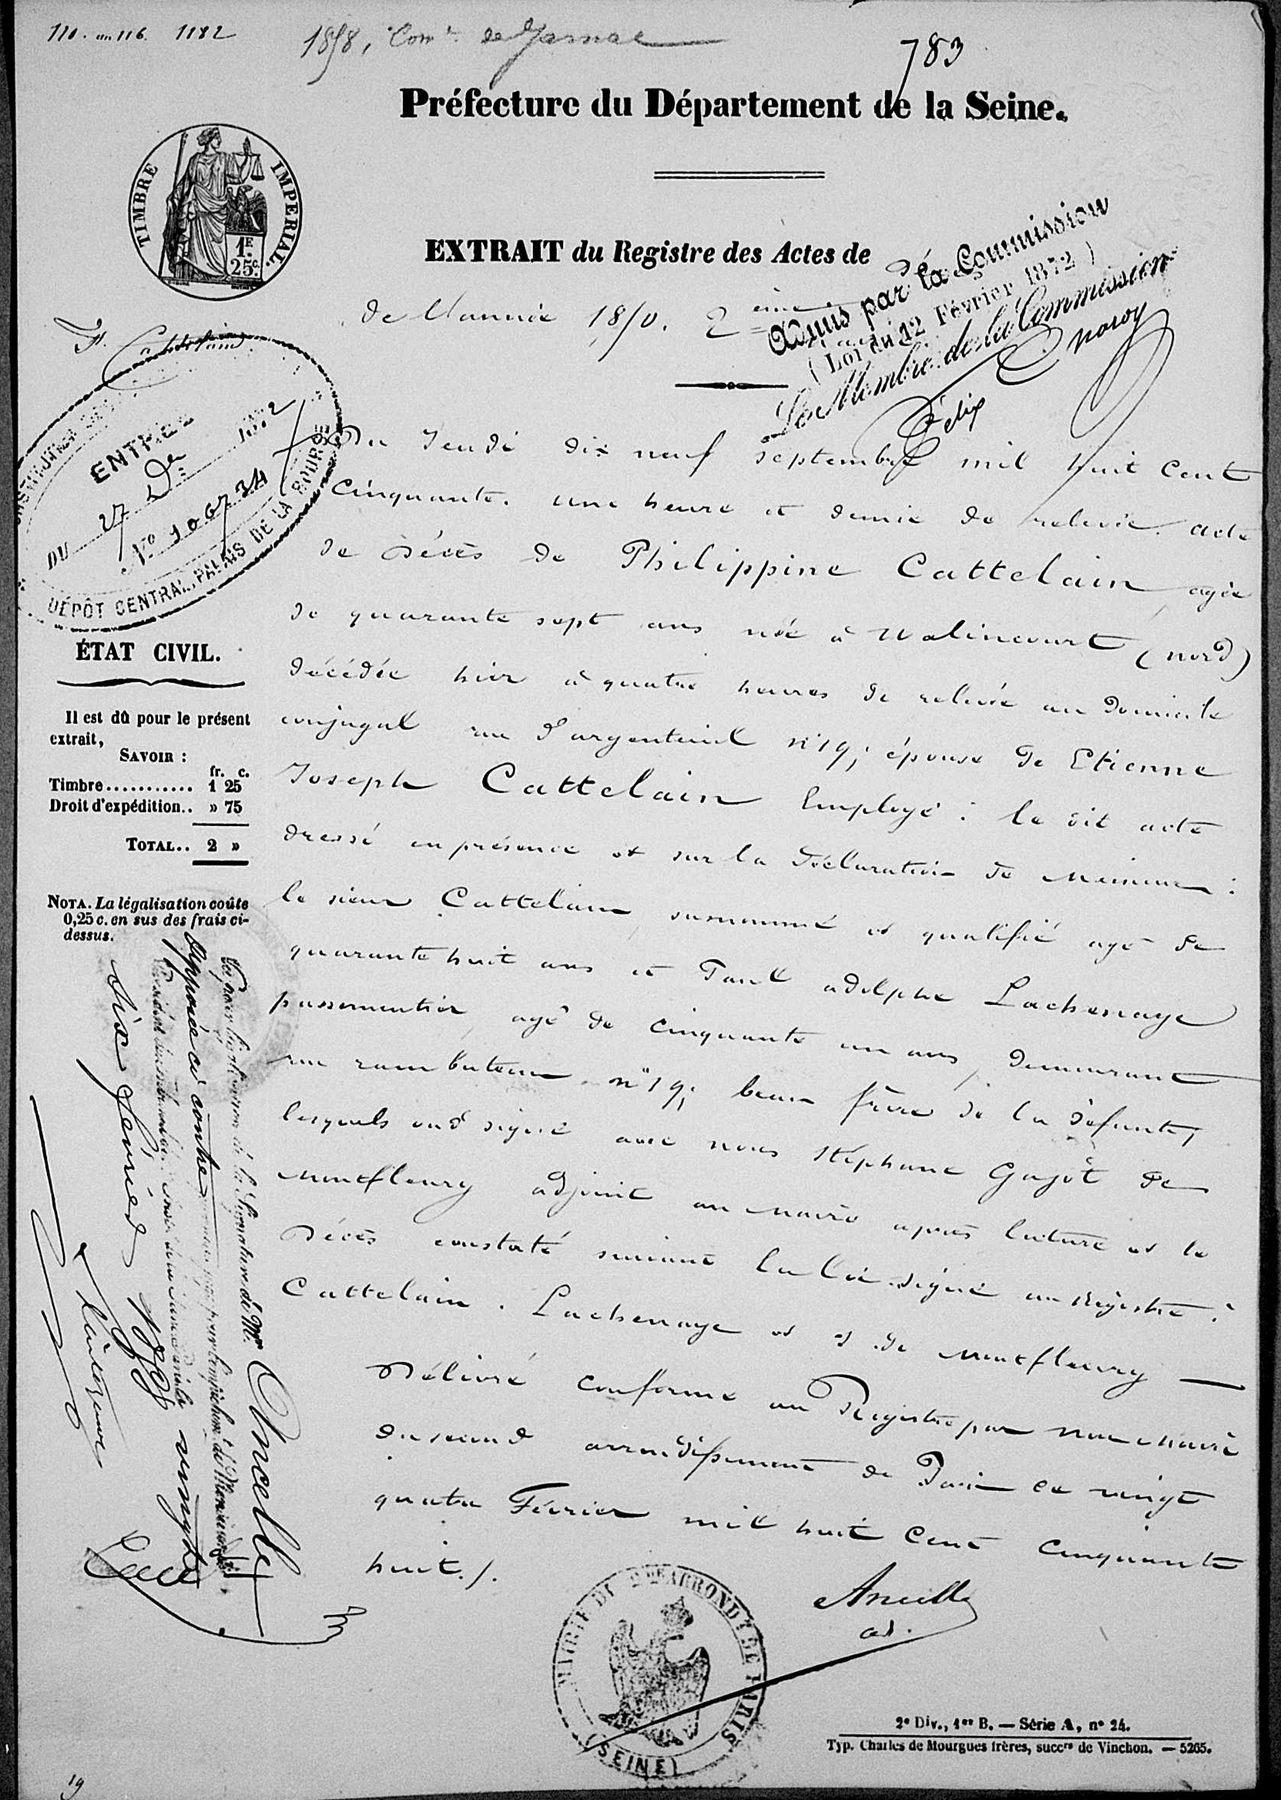 110. 116. 1182
1858, de Jarnac
783
Préfecture du Département de la Seine.
TIMBRE IMPERIAL.
1F.
25c.
EXTRAIT du Registre des Actes de
de l'année 1850. 2eme
Admis par la Commission
(Loi du 12 Février 1872)
Le Membre de la Commission
Félix
Cattelain
ENTRÉE
DU 27 De 1872
No 100734
DÉPÔT CENTRAL, PALAIS DE LA BOURSE
Du Jeudi dix neuf septembre mil huit cent
cinquante. une heure et demie de relevée. acte
de décès de Philippine Cattelain, agée
de quarante sept ans née à Walincourt (nord)
décédée hier à quatre heures de relevée au domicile
conjugal rue d'argenteuil n°19; épouse de Etienne
Joseph Cattelain employé : le dit acte
dressé en présence et sur la déclaration de Messieurs :
le sieur Cattelain susnommé et qualifié agé de
quarante huit ans et Paul adolphe Lachenaye
passementier, agé de cinquante un ans, demeurant
rue rambuteau n°19; beau frère de la défunte,
lesquels ont signé avec nous Stéphane Gajôt de
montfleury adjoint au maire après lecture et le
décès constaté suivant la loi. signé au registre :
Cattelain. Lachenaye et de montfleury —
Délivré conforme au Registre par nous maire
du second arrondissement de Paris ce vingt
quatre Février mil huit cent cinquante
huit./.
Ancelle
ad.
ÉTAT CIVIL.
Il est dû pour le présent
extrait,
SAVOIR :
fr. c.
Timbre........... 1 25
Droit d'expédition.. » 75
TOTAL.. 2 »
NOTA. La légalisation coûte
0,25 c. en sus des frais ci-
dessus.
Vu pour légalisation de la Signature de Mr Ancelle
Apposée ci contre
pour l'empêchement de Monsieur le
Président du tribunal de
Six février
MAIRIE DU 2ME ARRONDT DE PARIS
(SEINE)
2e Div., 1er B. — Série A, n° 24.
Typ. Charles de Mourgues frères, succrs de Vinchon. — 5265.
19